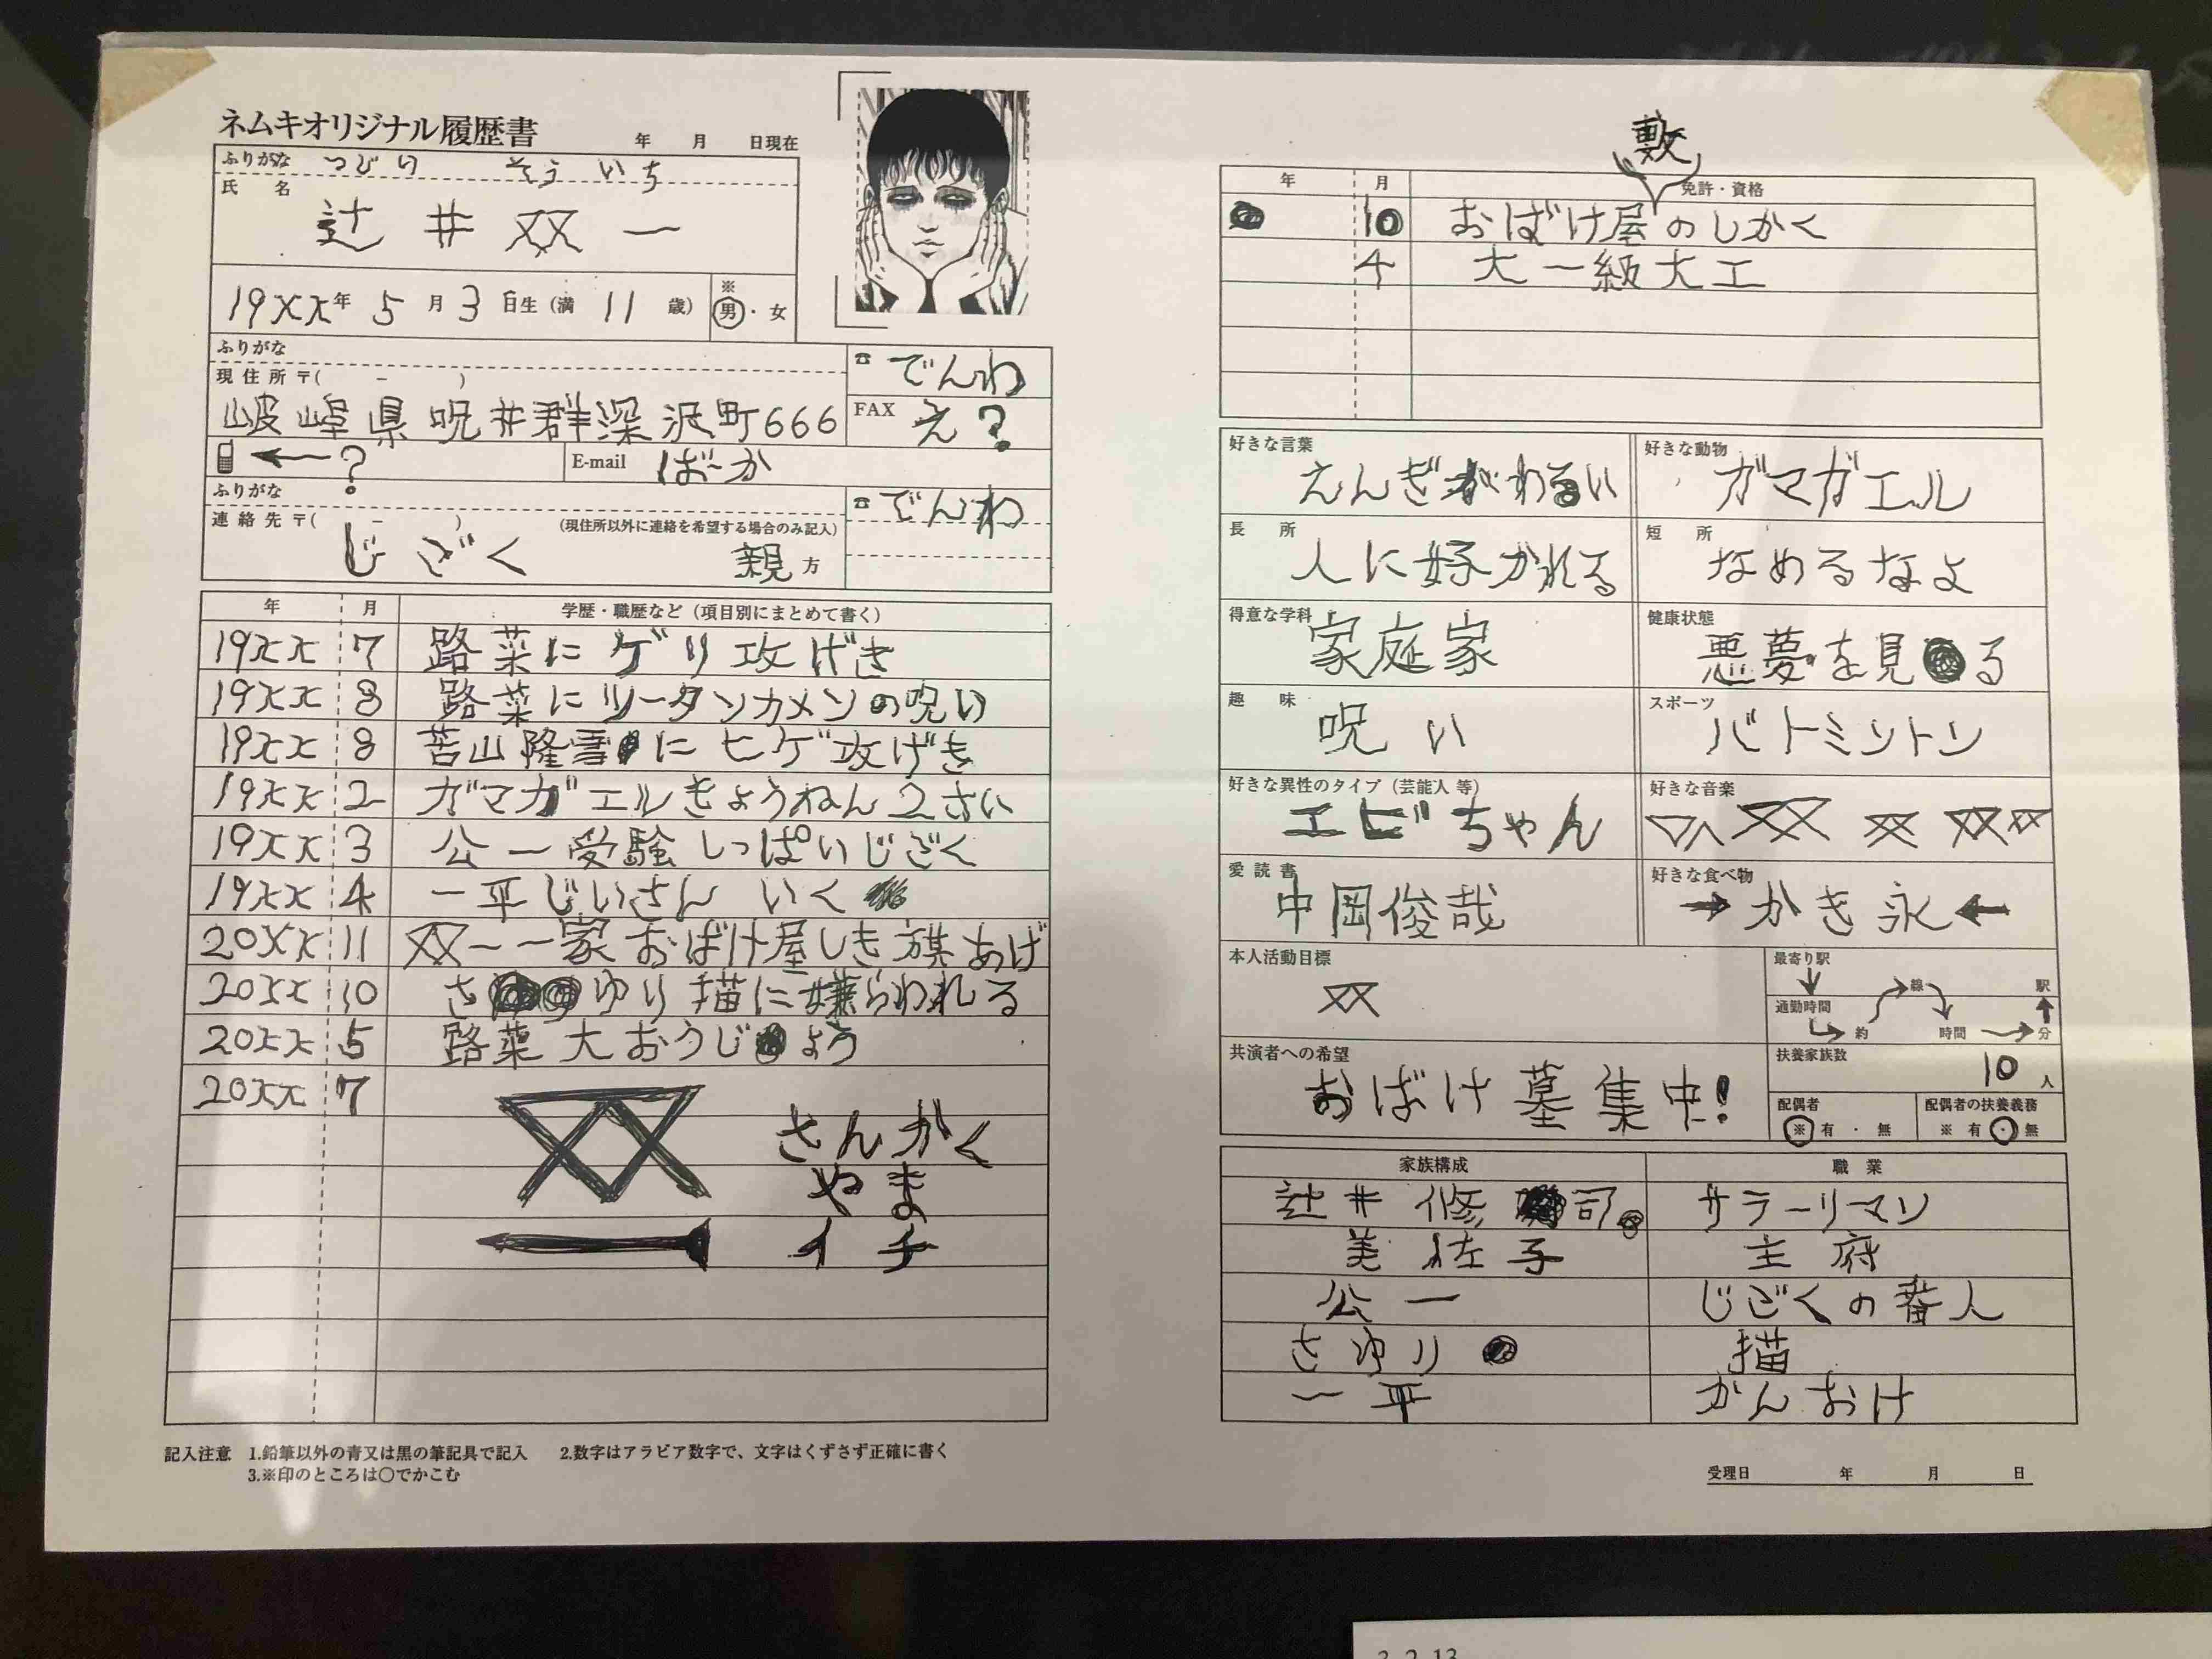 ネムキオリジナル履歴書
年 月 日現在
ふりがな つじい そういち
氏名 辻井双一
19xx年 5月3日生(満 11 歳) ※男・女
ふりがな
現住所〒( - )
岐阜県呪井群深沢町666
☎ でんわ
FAX え?
←?
E-mail ばーか
ふりがな
連絡先〒( - ) (現住所以外に連絡を希望する場合のみ記入)
じごく 親方
☎ でんわ
年 月 学歴・職歴など(項目別にまとめて書く)
19xx 7 路菜にゲリ攻げき
19xx 8 路菜にツータンカメンの呪い
19xx 8 苫山隆雪にヒゲ攻げき
19xx 2 ガマガエルきょうねん2さい
19xx 3 公一受験しっぱいじごく
19xx 4 一平じいさん いく
20xx 11 双一一家おばけ屋しき旗あげ
20xx 10 さゆり描に嫌らわれる
20xx 5 路菜大おうじょう
20xx 7
さんかく
やま
イチ
記入注意 1.鉛筆以外の青又は黒の筆記具で記入 2.数字はアラビア数字で、文字はくずさず正確に書く
3.※印のところは○でかこむ
敷
年 月 免許・資格
10 おばけ屋のしかく
4 大一級大工
好きな言葉 えんぎがわるい
好きな動物 ガマガエル
長所 人に好かれる
短所 なめるなよ
得意な学科 家庭家
健康状態 悪夢を見る
趣味 呪い
スポーツ バトミントン
好きな異性のタイプ(芸能人 等) エビちゃん
好きな音楽
愛読書 中岡俊哉
好きな食べ物 →かき永←
本人活動目標
最寄り駅 線 駅
通勤時間 約 時間 分
共演者への希望 おばけ墓集中!
扶養家族数 10人
配偶者 ※ 有・無
配偶者の扶養義務 ※ 有・無
家族構成 職業
辻井修司 サラーリマン
美佐子 主府
公一 じごくの番人
さゆり 描
一平 かんおけ
受理日 年 月 日